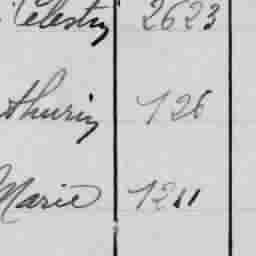 Célestin 2623
thurin 126
Marie 1211